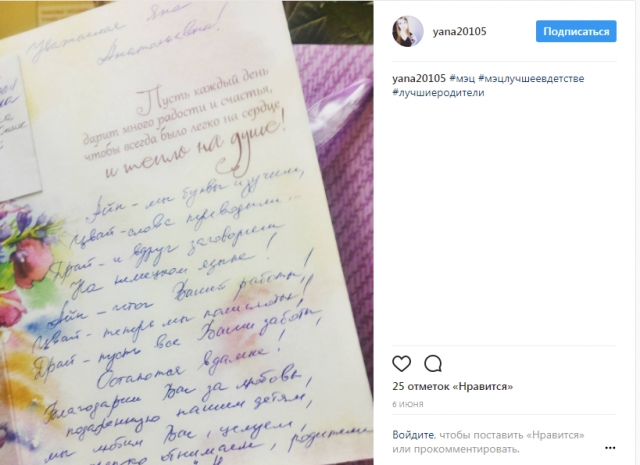 Уважаемая Яна
Анатольевна!
Пусть каждый день
дарит много радости и счастья,
чтобы всегда было легко на сердце
и тепло на душе!
Айн - мы буквы изучили,
Цвай - слова переводили...
Драй - и вдруг заговорили
На немецком языке!
Айн - итог Вашей работы,
Цвай - теперь мы полиглоты!
Драй - пусть все Ваши заботы,
Останутся вдалике!
Благодарим Вас за любовь,
подаренную нашим детям,
мы любим Вас, целуем,
обнимаем, родители
yana20105
Подписаться
yana20105 #мэц #мэцлучшеевдетстве
#лучшиеродители
25 отметок «Нравится»
6 июня
Войдите, чтобы поставить «Нравится»
или прокомментировать.